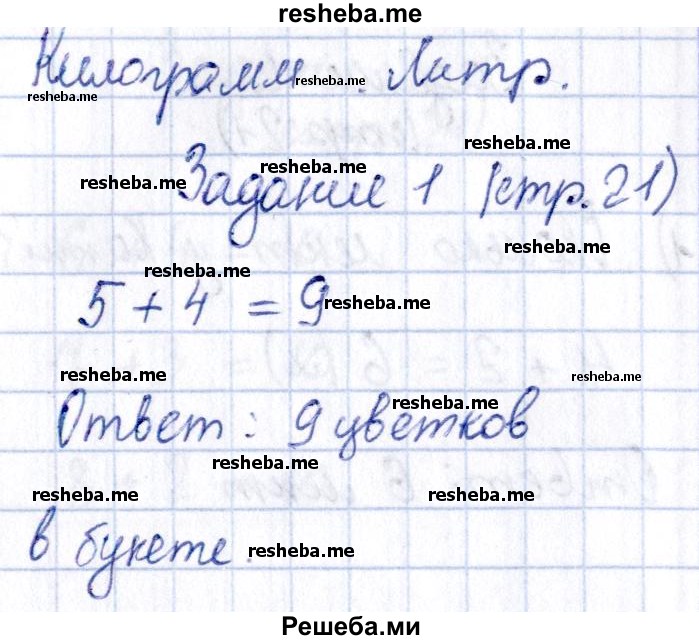 resheba.me
Килограмм. Литр.
resheba.me
resheba.me
resheba.me
resheba.me
resheba.me
Задание 1 (стр. 21)
resheba.me
resheba.me
resheba.me
5 + 4 = 9
resheba.me
resheba.me
resheba.me
resheba.me
Ответ: 9 цветков
resheba.me
resheba.me
resheba.me
в букете.
resheba.me
Решеба.ми